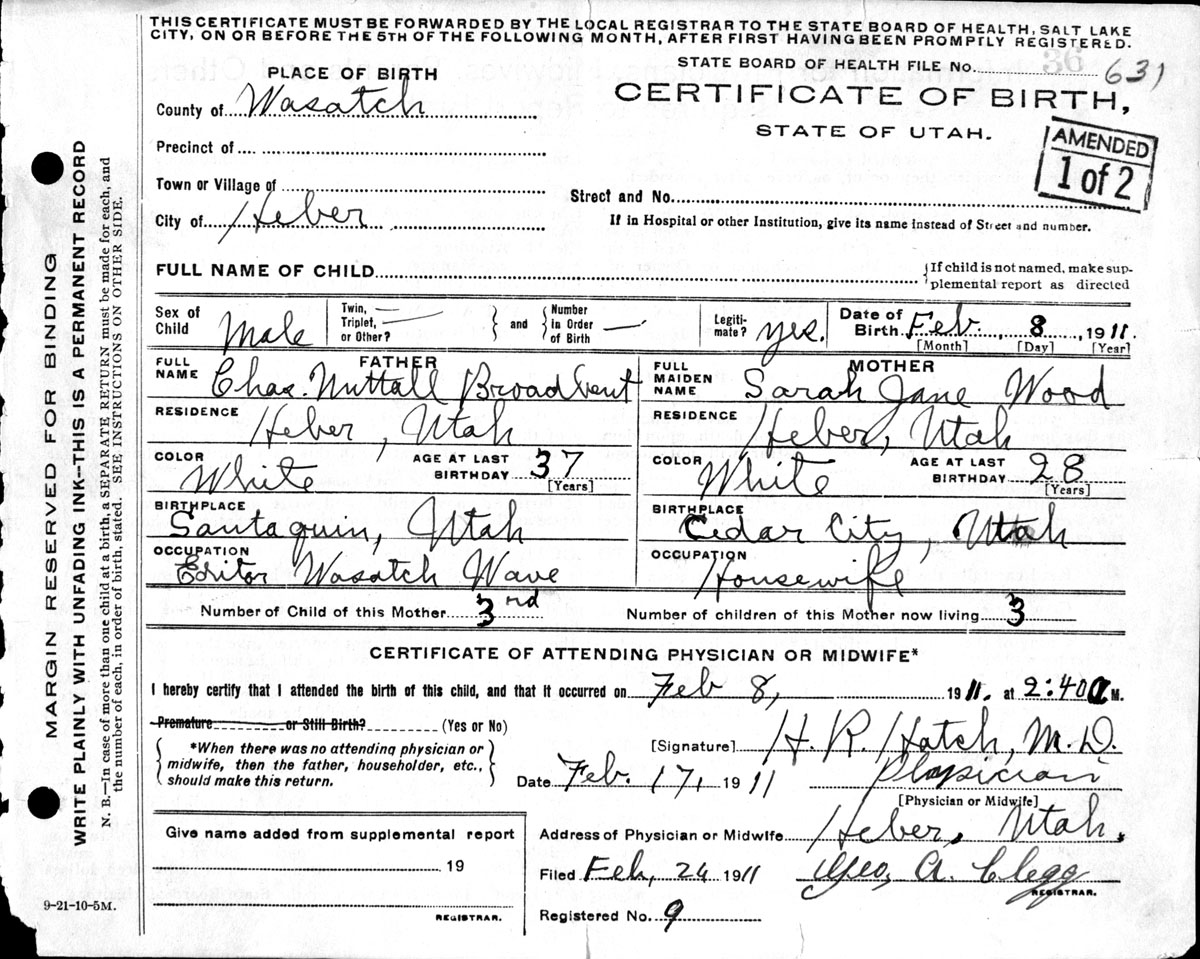 THIS CERTIFICATE MUST BE FORWARDED BY THE LOCAL REGISTRAR TO THE STATE BOARD OF HEALTH, SALT LAKE
CITY, ON OR BEFORE THE 5TH OF THE FOLLOWING MONTH, AFTER FIRST HAVING BEEN PROMPTLY REGISTERED.
PLACE OF BIRTH
STATE BOARD OF HEALTH FILE No. 36 631
County of Wasatch
CERTIFICATE OF BIRTH,
STATE OF UTAH.
AMENDED
1 of 2
Precinct of
Town or Village of
Street and No.
City of Heber
If in Hospital or other Institution, give its name instead of Street and number.
FULL NAME OF CHILD
{If child is not named, make sup-
plemental report as directed
Sex of Child Male
Twin, Triplet, or Other? —
and
Number In Order of Birth —
Legiti-mate? yes.
Date of Birth Feb. 8, 1911.
[Month] [Day] [Year]
FATHER
FULL NAME Chas. Nuttall Broadbent
MOTHER
FULL MAIDEN NAME Sarah Jane Wood
RESIDENCE Heber, Utah
RESIDENCE Heber, Utah
COLOR White AGE AT LAST BIRTHDAY 37 [Years]
COLOR White AGE AT LAST BIRTHDAY 28 [Years]
BIRTHPLACE Santaquin, Utah
BIRTHPLACE Cedar City, Utah
OCCUPATION Editor Wasatch Wave
OCCUPATION Housewife
Number of Child of this Mother 3rd
Number of children of this Mother now living 3
CERTIFICATE OF ATTENDING PHYSICIAN OR MIDWIFE*
I hereby certify that I attended the birth of this child, and that it occurred on Feb 8, 1911. at 2:40 a M.
Premature or Still Birth? (Yes or No)
*When there was no attending physician or
midwife, then the father, householder, etc.,
should make this return.
[Signature] H. R. Hatch, M.D.
Date Feb. 17, 1911
Physician
[Physician or Midwife]
Give name added from supplemental report
19
REGISTRAR.
Address of Physician or Midwife Heber, Utah.
Filed Feb, 24 1911 Geo. A. Clegg
REGISTRAR.
Registered No. 9
9-21-10-5M.
MARGIN RESERVED FOR BINDING
WRITE PLAINLY WITH UNFADING INK--THIS IS A PERMANENT RECORD
N. B.—In case of more than one child at a birth, a SEPARATE RETURN must be made for each, and
the number of each, in order of birth, stated. SEE INSTRUCTIONS ON OTHER SIDE.